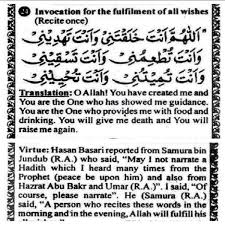 Invocation for the fulfilment of all wishes
(Recite once)
اَللّٰهُمَّ اَنْتَ خَلَقْتَنِىْ وَاَنْتَ تَهْدِيْنِىْ
وَاَنْتَ تُطْعِمُنِىْ وَاَنْتَ تَسْقِيْنِىْ
وَاَنْتَ تُمِيْتُنِىْ وَاَنْتَ تُحْيِيْنِىْ
Translation: O Allah! You have created me and
You are the One who has showed me guidance.
You are the One who provides me with food and
drinking. You will give me death and You will
raise me again.
Virtue: Hasan Basari reported from Samura bin
Jundub (R.A.) who said, "May I not narrate a
Hadith which I heard many times from the
Prophet (peace be upon him) and also from
Hazrat Abu Bakr and Umar (R.A.)". I said, "Of
course, please narrate". He (Samura (R.A.)
said, "A person who recites these words in the
morning and in the evening, Allah will fulfill his